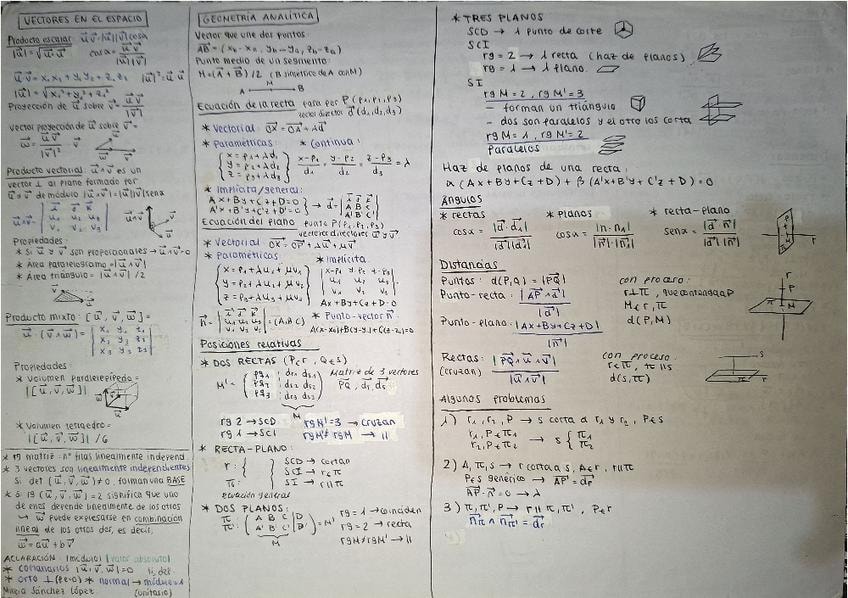 VECTORES EN EL ESPACIO
Producto escalar u⃗·v⃗ = |u⃗||v⃗|cosα
|u⃗| = √u⃗·u⃗    cosα = u⃗·v⃗ / |u⃗||v⃗|
u⃗·v⃗ = x₁x₂ + y₁y₂ + z₁z₂    |u⃗|² = u⃗·u⃗
Proyección de u⃗ sobre v⃗ = u⃗·v⃗ / |v⃗|
Vector proyección de u⃗ sobre v⃗ =
Producto vectorial: u⃗∧v⃗ es un
vector ⊥ al plano formado por
u⃗ y v⃗ de módulo |u⃗∧v⃗| = |u⃗||v⃗|senα
Propiedades:
* Si u⃗ y v⃗ son proporcionales → u⃗∧v⃗ = 0
* Área paralelogramo = |u⃗∧v⃗|
* Área triángulo = |u⃗∧v⃗| / 2
Producto mixto: [u⃗, v⃗, w⃗] =
Propiedades:
* Volumen paralelepípedo =
|[u⃗, v⃗, w⃗]|
* Volumen tetraedro =
|[u⃗, v⃗, w⃗]| / 6
* rg matriz: nº filas linealmente independ.
* 3 vectores son linealmente independientes
si det (u⃗, v⃗, w⃗) ≠ 0, forman una BASE
* si rg (u⃗, v⃗, w⃗) = 2 significa que uno
de ellos depende linealmente de los otros
→ w⃗ puede expresarse en combinación
lineal de los otros dos, es decir,
w⃗ = au⃗ + bv⃗
ACLARACIÓN: |módulo| |valor absoluto|
* coplanarios [u⃗, v⃗, w⃗] = 0
* orto ⊥ * normal → módulo = 1
María Sánchez López (unitario)
GEOMETRÍA ANALÍTICA
Vector que une dos puntos:
AB⃗ = (x_b - x_a, y_b - y_a, z_b - z_a)
Punto medio de un segmento:
M = (A⃗ + B⃗) / 2 (B simétrico de A con M)
A M B
Ecuación de la recta pasa por P(p₁, p₂, p₃)
vector director d⃗(d₁, d₂, d₃)
* Vectorial: OX⃗ = OA⃗ + λd⃗
* Paramétricas: * Continua:
x = p₁ + λd₁
y = p₂ + λd₂    x-p₁/d₁ = y-p₂/d₂ = z-p₃/d₃ = λ
z = p₃ + λd₃
* Implícita/general:
Ax + By + Cz + D = 0
A'x + B'y + C'z + D' = 0
Ecuación del plano punto P(p₁, p₂, p₃)
vectores directores u⃗ y v⃗
* Vectorial OX⃗ = OP⃗ + λu⃗ + μv⃗
* Paramétricas * Implícita
x = p₁ + λu₁ + μv₁    x-p₁ y-p₂ z-p₃
y = p₂ + λu₂ + μv₂    u₁ u₂ u₃
z = p₃ + λu₃ + μv₃    v₁ v₂ v₃
Ax + By + Cz + D = 0
= (A, B, C) * Punto-vector n⃗
A(x-x₀) + B(y-y₀) + C(z-z₀) = 0
Posiciones relativas
* DOS RECTAS (P∈r, Q∈s)
Matriz de 3 vectores
PQ⃗, dr⃗, ds⃗
M
rg 2 → SCD    rg M' = 3 → cruzan
rg 1 → SCI    rg M' ≠ rg M → ||
* RECTA-PLANO:
r: SCD → cortan
SCI → r∈π
π: SI → r||π
ecuación general
* DOS PLANOS:
π ( A B C | D ) = M'    rg = 1 → coinciden
π' ( A' B' C' | D' )    rg = 2 → recta
M    rg M ≠ rg M' → ||
* TRES PLANOS
SCD → 1 punto de corte
SCI
rg = 2 → 1 recta (haz de planos)
rg = 1 → 1 plano
SI
rg M = 2, rg M' = 3
- forman un triángulo
- dos son paralelos y el otro los corta
rg M = 1, rg M' = 2
Paralelos
Haz de planos de una recta:
α(Ax + By + Cz + D) + β(A'x + B'y + C'z + D) = 0
Ángulos
* rectas * planos * recta-plano
cosα = |d⃗·d₁⃗| / |d⃗||d₁⃗|    cosα = |n·n₁| / |n⃗||n₁⃗|    senα = |d⃗·n⃗| / |d⃗||n⃗|
Distancias
Puntos: d(P,Q) = |PQ⃗|    con proceso:
Punto-recta: |AP⃗∧d⃗| / |d⃗|    r⊥π, que contenga a P
M∈r, π
Punto-plano: |Ax + By + Cz + D| / |n⃗|    d(P, M)
Rectas: |PQ⃗·u⃗∧v⃗| / |u⃗∧v⃗|    con proceso:
(cruzan)    r∈π, π||s
d(s, π)
Algunos problemas
1) r₁, r₂, P → s corta a r₁ y r₂, P∈s
r₁, P∈π₁
r₂, P∈π₂ → s { π₁ π₂
2) A, π, s → r corta a s, A∈r, r||π
P∈s genérico → AP⃗ = dr⃗
AP⃗·n⃗ = 0 → λ
3) π, π', P → r||π, π', P∈r
nπ⃗ ∧ nπ'⃗ = dr⃗